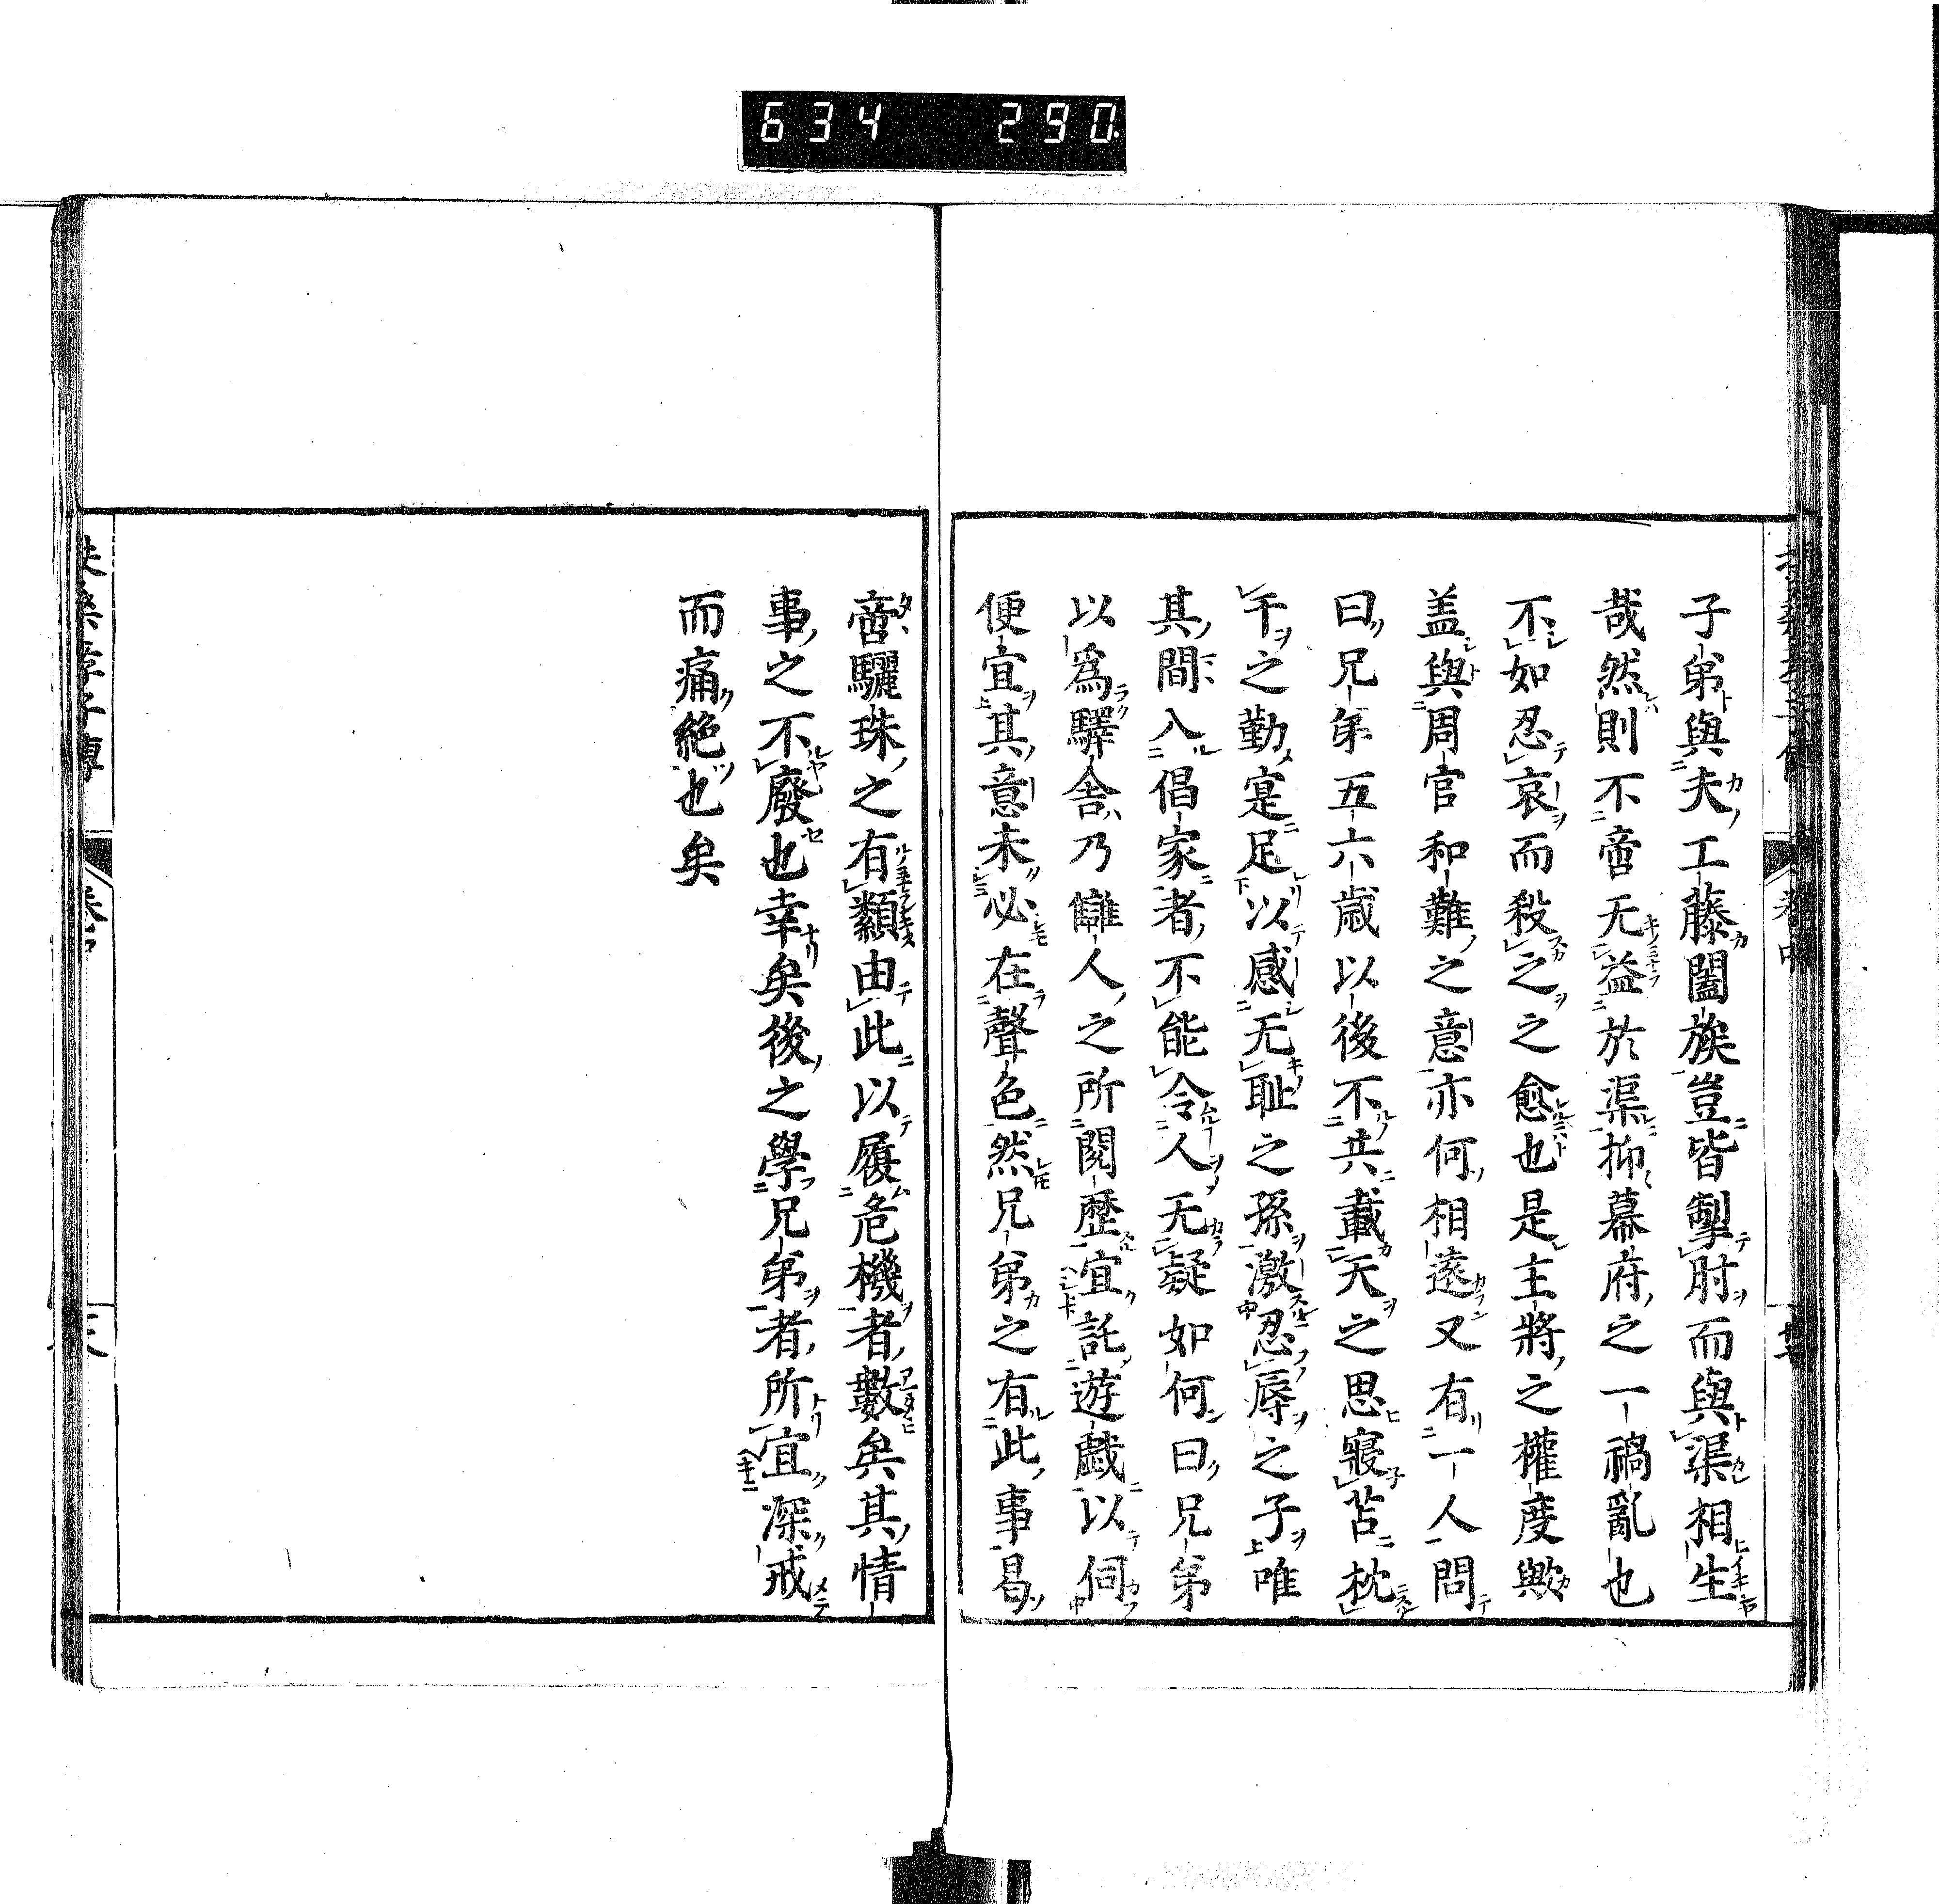 634 290
子弟與夫工藤闔族豈皆掣肘而與渠相生
哉然則不啻无益於渠抑幕府之一禍亂也
不如忍哀而殺之之愈也是主將之權度歟
盖與周官和難之意亦何相遠又有一人問
曰兄弟五六歳以後不共載天之思寢苫枕
干之勤寔足以感无耻之孫激忍辱之子唯
其間入倡家者不能令人无疑如何曰兄弟
以爲驛舎乃讎人之所閲歴宜託遊戯以伺
便宜其意未必在聲色然兄弟之有此事曷
啻驪珠之有纇由此以履危機者數矣其情
事之不廢也幸矣後之學兄弟者所宜深戒
而痛絶也矣